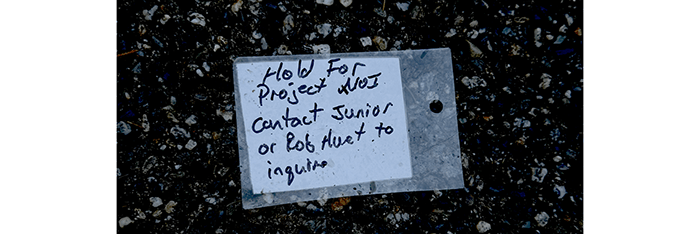 Hold For
Project NOI
Contact Junior
or Rob Huet to
inquire